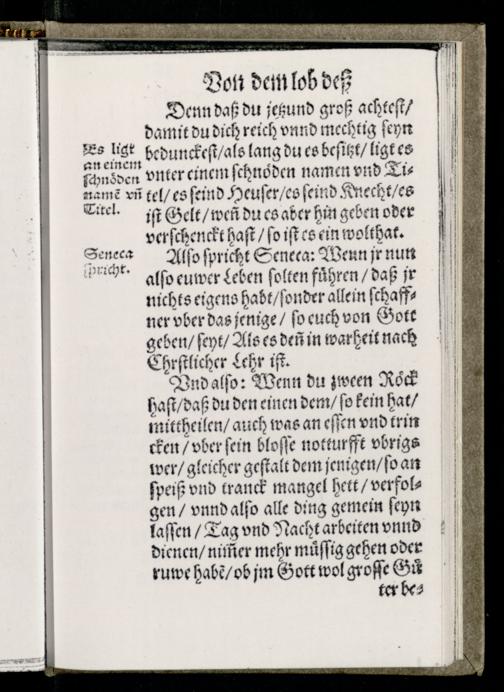 Von dem lob deß
Denn daß du jetzund groß achtest/
damit du dich reich vnnd mechtig seyn
bedunckest/als lang du es besitzt/ ligt es
vnter einem schnöden namen vnd Ti-
tel/ es seind Heuser/es seind Knecht/es
ist Gelt/ weñ du es aber hin geben oder
verschenckt hast/ so ist es ein wolthat.
Es ligt
an einem
schnöden
namẽ vñ
Titel.
Also spricht Seneca: Wenn jr nun
also euwer Leben solten führen/ daß jr
nichts eigens habt/sonder allein schaff-
ner vber das jenige/ so euch von Gott
geben/ seyt/ Als es deñ in warheit nach
Chrstlicher Lehr ist.
Seneca
spricht.
Vnd also: Wenn du zween Röck
hast/daß du den einen dem/ so kein hat/
mittheilen/ auch was an essen vnd trin
cken/ vber sein blosse notturfft vbrigs
wer/ gleicher gestalt dem jenigen/ so an
speiß vnd tranck mangel hett/ verfol-
gen/ vnnd also alle ding gemein seyn
lassen/ Tag vnd Nacht arbeiten vnnd
dienen/ nim̃er mehr müssig gehen oder
ruwe habẽ/ ob jm Gott wol grosse Gü
ter be-